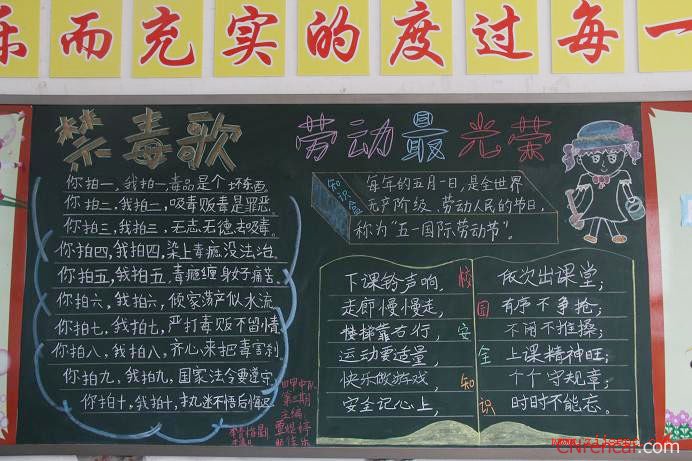 乐而充实的度过每一
禁毒歌
你拍一，我拍一，毒品是个坏东西
你拍二，我拍二，吸毒贩毒是罪恶。
你拍三，我拍三，无志无德去吸毒。
你拍四，我拍四，染上毒瘾没法治。
你拍五，我拍五，毒瘾缠身好痛苦。
你拍六，我拍六，倾家荡产似水流。
你拍七，我拍七，严打毒贩不留情。
你拍八，我拍八，齐心来把毒害刹。
你拍九，我拍九，国家法令要遵守。
你拍十，我拍十，执迷不悟后悔迟。
四甲中队
第二期
主编
劳动最光荣
知识窗
每年的五月一日，是全世界
无产阶级、劳动人民的节日，
称为“五一国际劳动节”。
校园安全知识
下课铃声响，
走廊慢慢走，
楼梯靠右行，
运动要适量，
快乐做游戏，
安全记心上，
依次出课堂；
有序不争抢；
不闹不推搡；
上课精神旺；
个个守规章；
时时不能忘。